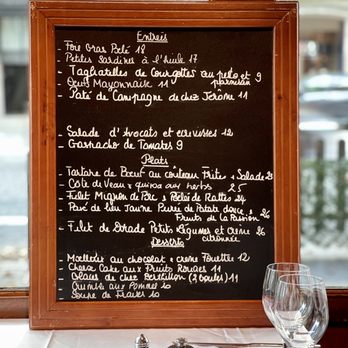 Entrées
- Foie Gras Poêlé 18
- Petites Sardines à l'huile 17
- Tagliatelles de Courgettes au pesto et 9
parmesan
- Oeufs Mayonnaise 11
- Pâté de Campagne de chez Jérôme 11
- Salade d'Avocats et écrevisses 12
- Gaspacho de Tomates 9
Plats
- Tartare de Boeuf au Couteau Frites & Salade 21
- Côte de Veau & quinoa aux herbes 25
- Filet Mignon de Porc & Poêlée de Rattes 24
- Pavé de lieu Jaune Purée de Patate douce & 26
Fruits de la Passion
- Filet de Dorade Petits Légumes et Crème 26
citronnée
Desserts
- Moelleux au chocolat & crème Fouettée 12
- Cheese Cake aux Fruits Rouges 11
- Glaces de chez Berthillon (2 boules) 11
- aux Pommes 10
- Soupe de Fraises 10